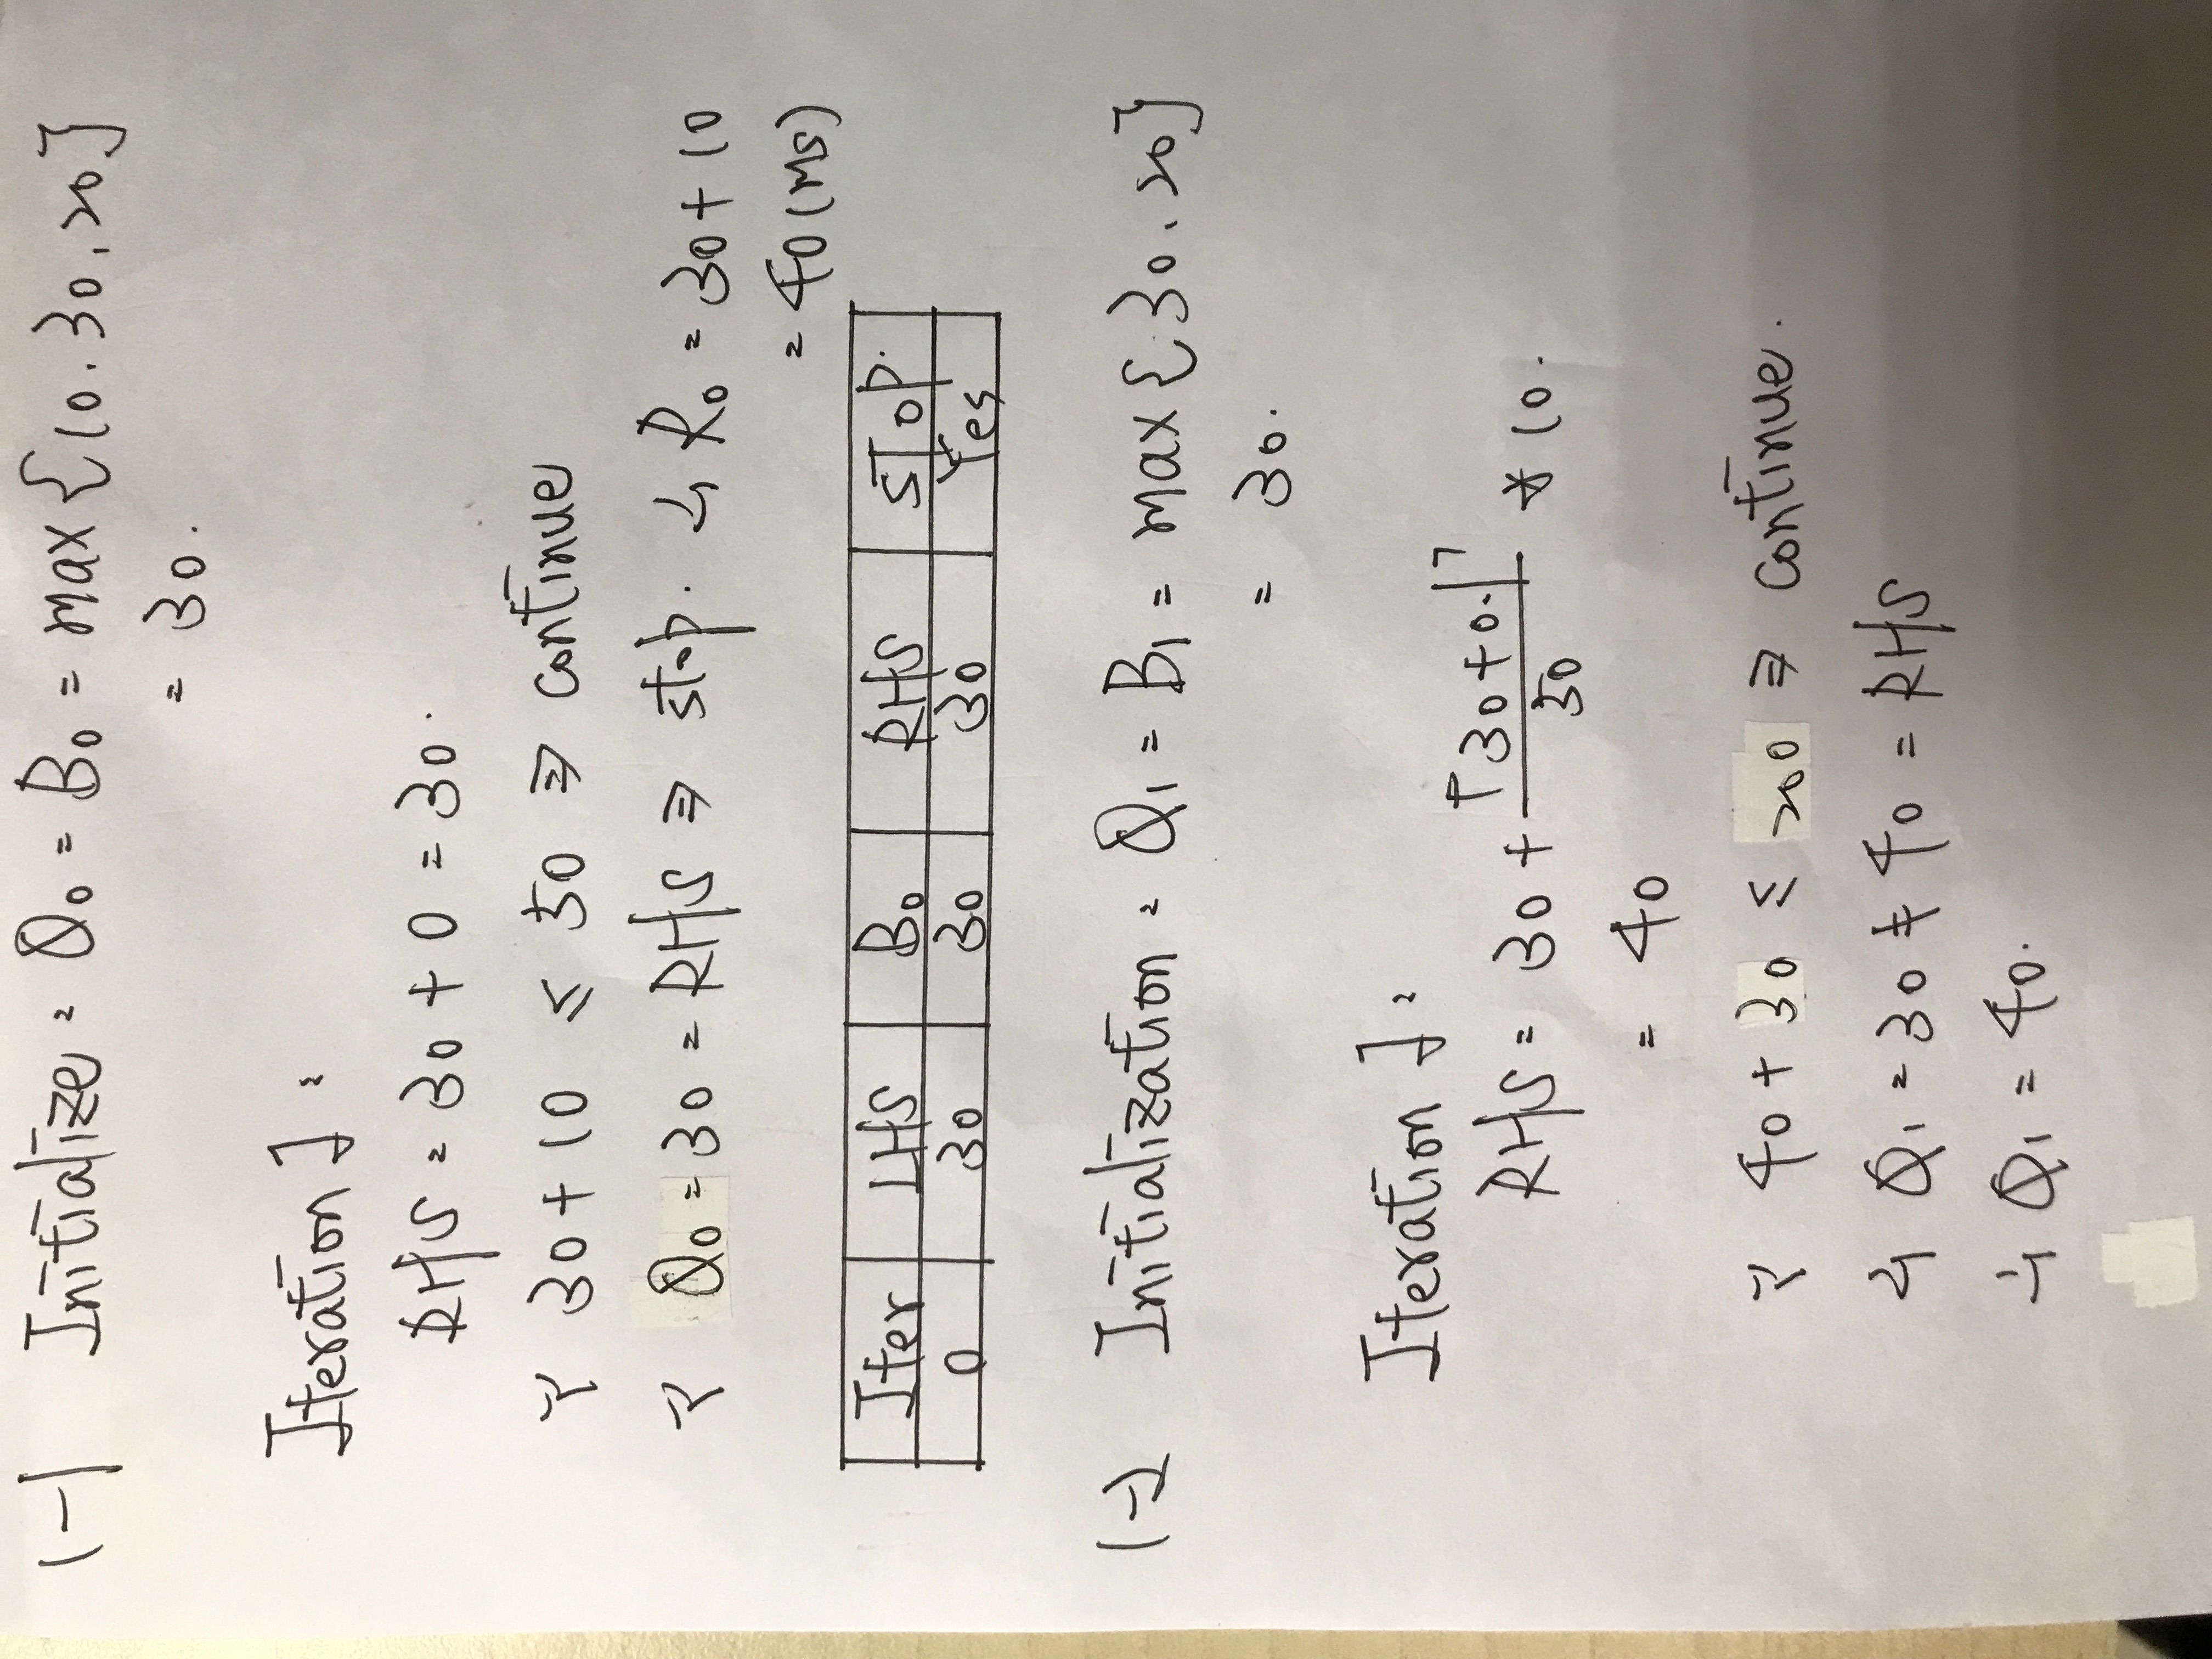 (-) Initialize : Q0 = B0 = max {10, 30, 20}
= 30.
Iteration 1 :
RHS = 30 + 0 = 30.
∵ 30 + 10 ≤ 50 ⇒ continue
∵ Q0 = 30 = RHS ⇒ stop. ∴ R0 = 30 + 10
= 40 (ms)
Iter LHS B0 RHS STOP.
0 30 30 30 Yes
(=) Initialization : Q1 = B1 = max {30, 20}
= 30.
Iteration 1 :
RHS = 30 + ⌈30 + 0.1⌉ / 50 * 10.
= 40
∵ 40 + 30 ≤ 200 ⇒ continue.
∴ Q1 = 30 ≠ 40 = RHS
∴ Q1 = 40.